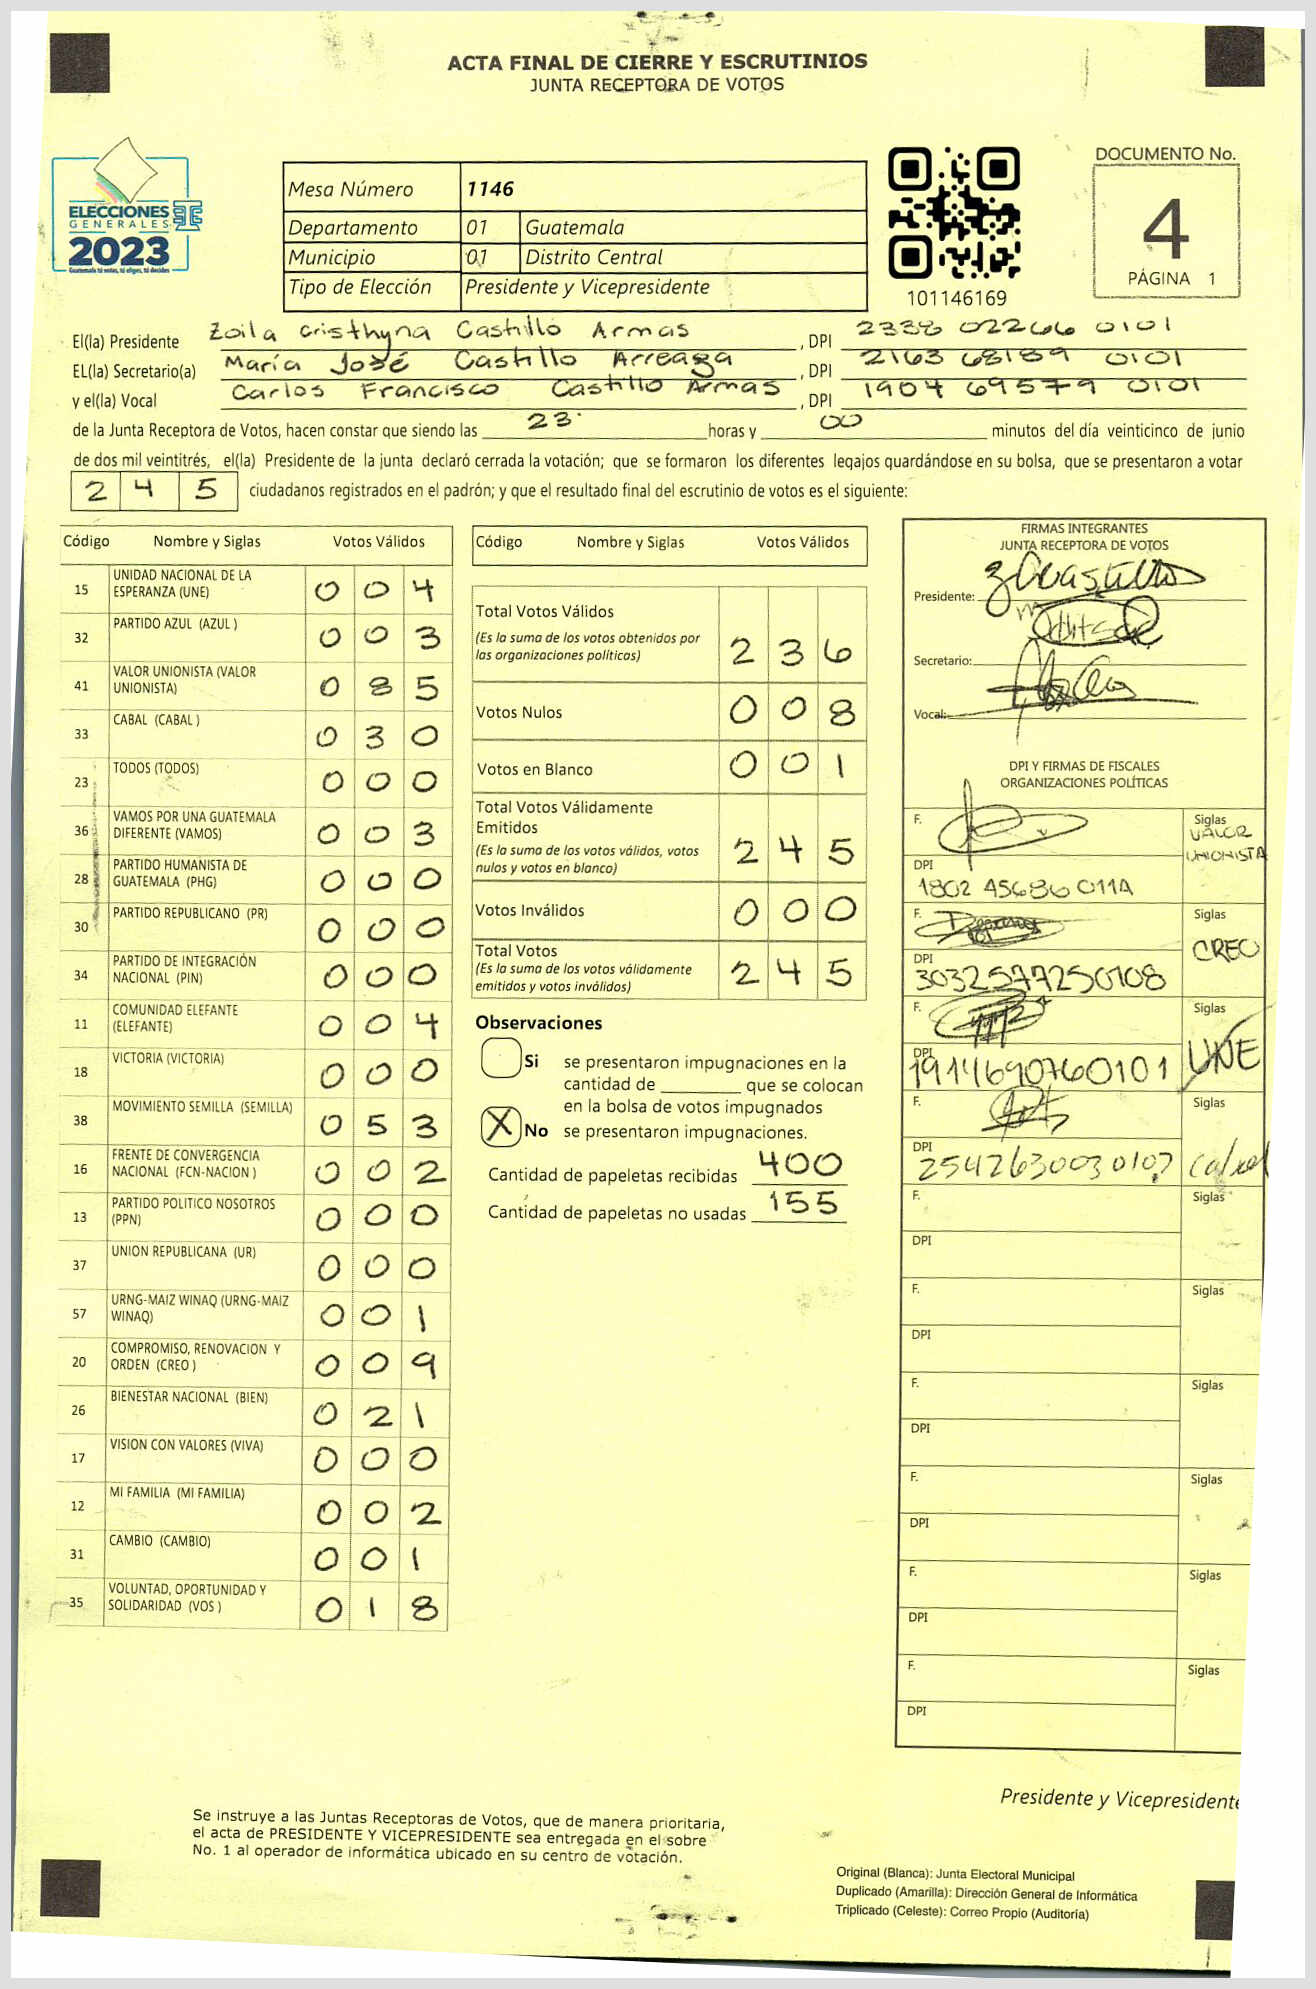 ACTA FINAL DE CIERRE Y ESCRUTINIOS
JUNTA RECEPTORA DE VOTOS
ELECCIONES
GENERALES
2023
Guatemala tú votas, tú eliges, tú decides
Mesa Número 1146
Departamento 01 Guatemala
Municipio 01 Distrito Central
Tipo de Elección Presidente y Vicepresidente
101146169
DOCUMENTO No.
4
PÁGINA 1
El(la) Presidente Zoila Cristhyna Castillo Armas , DPI 2338 02266 0101
EL(la) Secretario(a) María José Castillo Arreaga , DPI 2163 68189 0101
y el(la) Vocal Carlos Francisco Castillo Armas , DPI 1904 69579 0101
de la Junta Receptora de Votos, hacen constar que siendo las 23 horas y 00 minutos del día veinticinco de junio
de dos mil veintitrés, el(la) Presidente de la junta declaró cerrada la votación; que se formaron los diferentes legajos guardándose en su bolsa, que se presentaron a votar
2 4 5 ciudadanos registrados en el padrón; y que el resultado final del escrutinio de votos es el siguiente:
Código Nombre y Siglas Votos Válidos
15 UNIDAD NACIONAL DE LA
ESPERANZA (UNE) 0 0 4
32 PARTIDO AZUL (AZUL ) 0 0 3
41 VALOR UNIONISTA (VALOR
UNIONISTA) 0 8 5
33 CABAL (CABAL ) 0 3 0
23 TODOS (TODOS) 0 0 0
36 VAMOS POR UNA GUATEMALA
DIFERENTE (VAMOS) 0 0 3
28 PARTIDO HUMANISTA DE
GUATEMALA (PHG) 0 0 0
30 PARTIDO REPUBLICANO (PR) 0 0 0
34 PARTIDO DE INTEGRACIÓN
NACIONAL (PIN) 0 0 0
11 COMUNIDAD ELEFANTE
(ELEFANTE) 0 0 4
18 VICTORIA (VICTORIA) 0 0 0
38 MOVIMIENTO SEMILLA (SEMILLA) 0 5 3
16 FRENTE DE CONVERGENCIA
NACIONAL (FCN-NACION ) 0 0 2
13 PARTIDO POLITICO NOSOTROS
(PPN) 0 0 0
37 UNION REPUBLICANA (UR) 0 0 0
57 URNG-MAIZ WINAQ (URNG-MAIZ
WINAQ) 0 0 1
20 COMPROMISO, RENOVACION Y
ORDEN (CREO ) 0 0 9
26 BIENESTAR NACIONAL (BIEN) 0 2 1
17 VISION CON VALORES (VIVA) 0 0 0
12 MI FAMILIA (MI FAMILIA) 0 0 2
31 CAMBIO (CAMBIO) 0 0 1
35 VOLUNTAD, OPORTUNIDAD Y
SOLIDARIDAD (VOS ) 0 1 8
Código Nombre y Siglas Votos Válidos
Total Votos Válidos
(Es la suma de los votos obtenidos por
las organizaciones políticas) 2 3 6
Votos Nulos 0 0 8
Votos en Blanco 0 0 1
Total Votos Válidamente
Emitidos
(Es la suma de los votos válidos, votos
nulos y votos en blanco) 2 4 5
Votos Inválidos 0 0 0
Total Votos
(Es la suma de los votos válidamente
emitidos y votos inválidos) 2 4 5
Observaciones
Si se presentaron impugnaciones en la
cantidad de ________ que se colocan
en la bolsa de votos impugnados
X No se presentaron impugnaciones.
Cantidad de papeletas recibidas 400
Cantidad de papeletas no usadas 155
FIRMAS INTEGRANTES
JUNTA RECEPTORA DE VOTOS
Presidente:
Secretario:
Vocal:
DPI Y FIRMAS DE FISCALES
ORGANIZACIONES POLÍTICAS
F. Siglas VALOR
UNIONISTA
DPI
1802 45686 011A
F. Siglas
CREO
DPI
3032577250108
F. Siglas
UNE
DPI
1914690760101
F. Siglas
DPI
2542630030107 Cabal
F. Siglas
DPI
F. Siglas
DPI
F. Siglas
DPI
F. Siglas
DPI
F. Siglas
DPI
F. Siglas
DPI
Presidente y Vicepresidente
Se instruye a las Juntas Receptoras de Votos, que de manera prioritaria,
el acta de PRESIDENTE Y VICEPRESIDENTE sea entregada en el sobre
No. 1 al operador de informática ubicado en su centro de votación.
Original (Blanca): Junta Electoral Municipal
Duplicado (Amarilla): Dirección General de Informática
Triplicado (Celeste): Correo Propio (Auditoría)